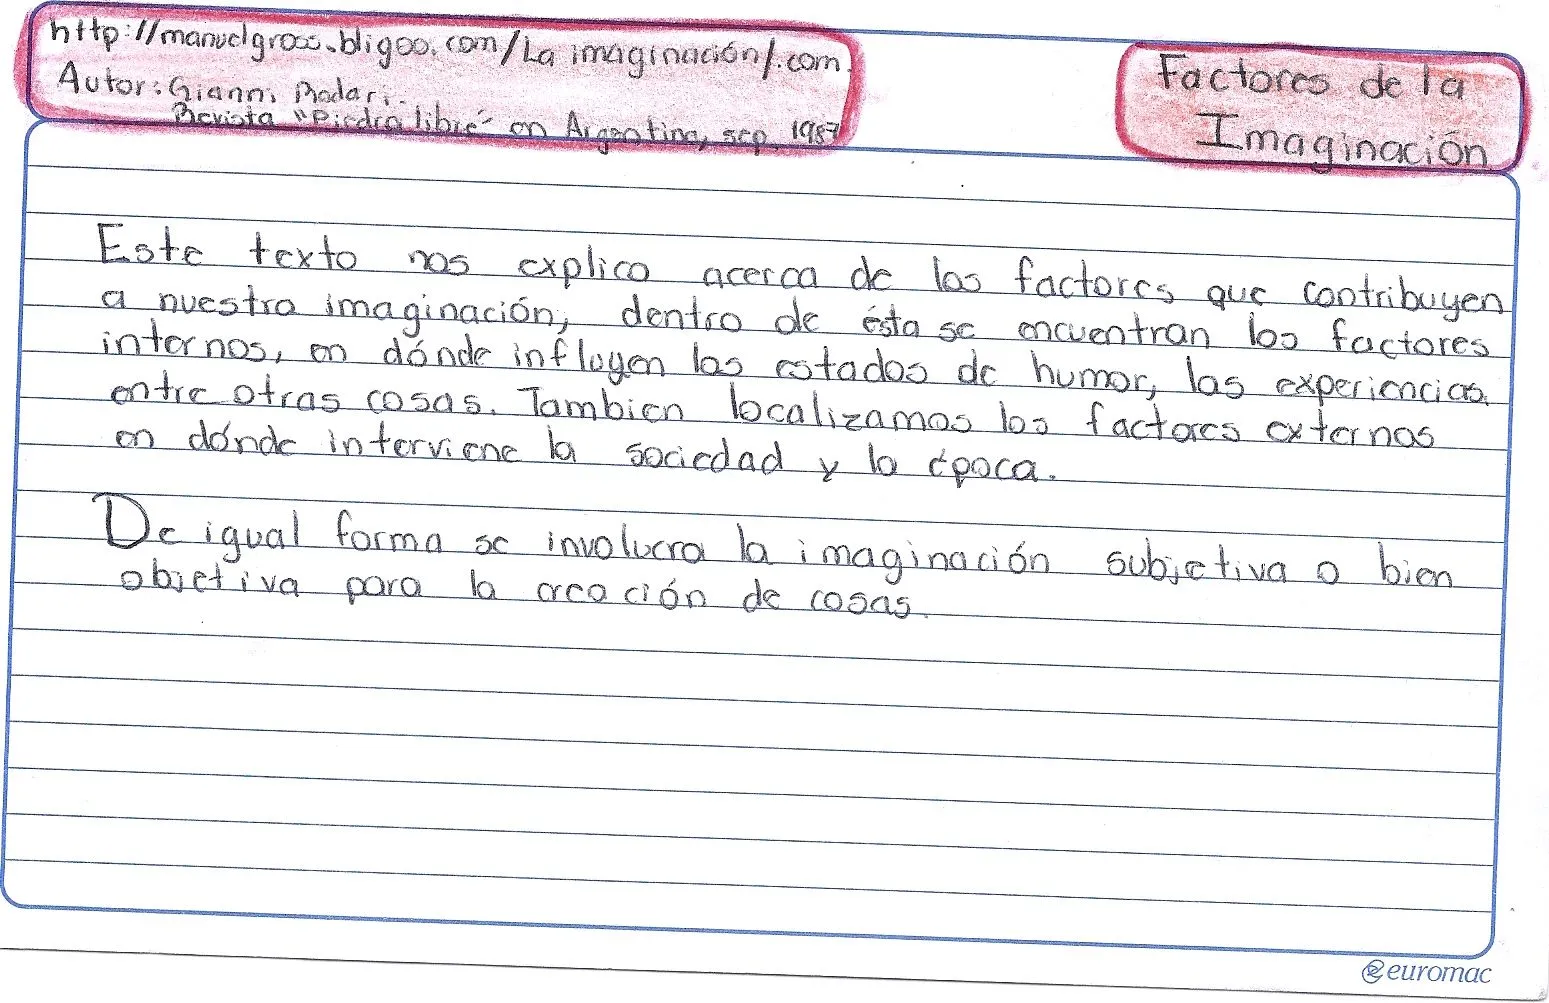 http://manuelgross.bligoo.com/La imaginación/.com.
Autor: Gianni Rodari.
Revista "Piedra libre" en Argentina, sep, 1987
Factores de la
Imaginación
Este texto nos explica acerca de los factores que contribuyen
a nuestra imaginación, dentro de ésta se encuentran los factores
internos, en dónde influyen los estados de humor, las experiencias,
entre otras cosas. Tambien localizamos los factores externos
en dónde interviene la sociedad y la época.
De igual forma se involucra la imaginación subjetiva o bien
objetiva para la creación de cosas.
euromac